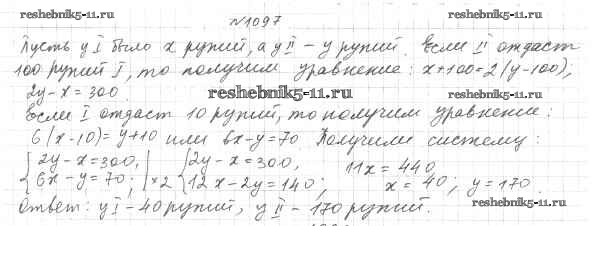 reshebnik5-11.ru
№1097
reshebnik5-11.ru
Пусть у I было x рупий, а у II – y рупий. Если II отдаст
100 рупий I, то получим уравнение: x+100=2(y-100);
2y-x=300
reshebnik5-11.ru
Если I отдаст 10 рупий, то получим уравнение:
6(x-10)=y+10 или 6x-y=70. Получили систему:
{2y-x=300, | {2y-x=300, 11x=440
{6x-y=70; |×2 {12x-2y=140; x=40; y=170
Ответ: у I – 40 рупий, у II – 170 рупий.
reshebnik5-11.ru
reshebnik5-11.ru